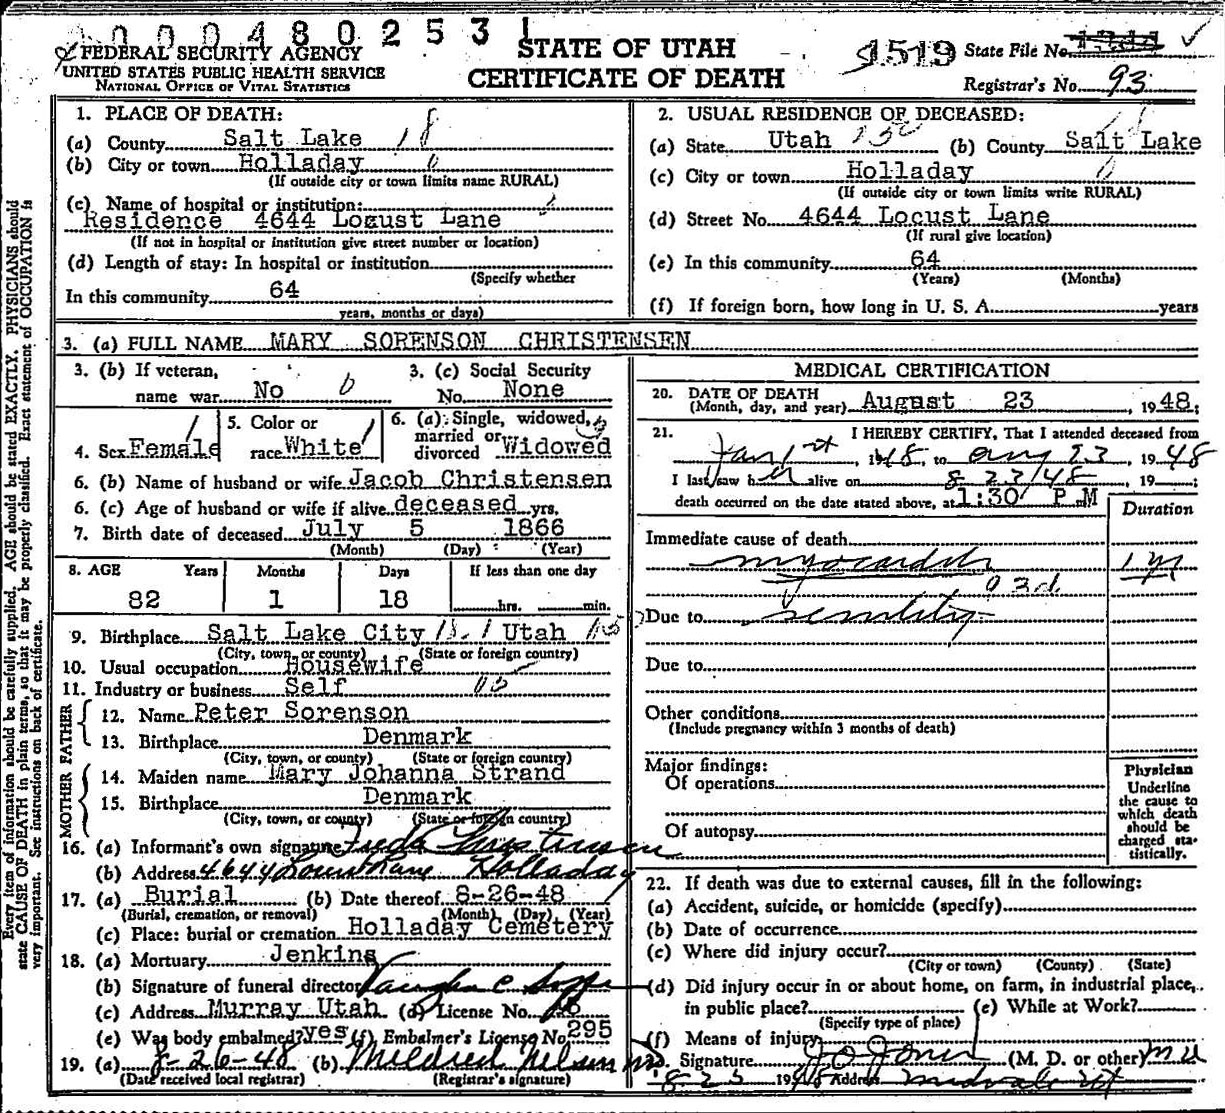 000480253
FEDERAL SECURITY AGENCY
UNITED STATES PUBLIC HEALTH SERVICE
NATIONAL OFFICE OF VITAL STATISTICS
STATE OF UTAH
CERTIFICATE OF DEATH
1519 State File No.
Registrar's No. 93
Every item of information should be carefully supplied. AGE should be stated EXACTLY. PHYSICIANS should
state CAUSE OF DEATH in plain terms, so that it may be properly classified. Exact statement of OCCUPATION is
very important. See instructions on back of certificate.
1. PLACE OF DEATH:
(a) County Salt Lake 18
(b) City or town Holladay 0
(If outside city or town limits name RURAL)
(c) Name of hospital or institution:
Residence 4644 Locust Lane
(If not in hospital or institution give street number or location)
(d) Length of stay: In hospital or institution
(Specify whether
In this community 64
years, months or days)
2. USUAL RESIDENCE OF DECEASED:
(a) State Utah (b) County Salt Lake
(c) City or town Holladay
(If outside city or town limits write RURAL)
(d) Street No. 4644 Locust Lane
(If rural give location)
(e) In this community 64
(Years) (Months)
(f) If foreign born, how long in U. S. A. years
3. (a) FULL NAME MARY SORENSON CHRISTENSEN
3. (b) If veteran, 3. (c) Social Security
name war No No. None
4. Sex Female
5. Color or
race White
6. (a) Single, widowed,
married or
divorced Widowed
6. (b) Name of husband or wife Jacob Christensen
6. (c) Age of husband or wife if alive deceased yrs.
7. Birth date of deceased July 5 1866
(Month) (Day) (Year)
8. AGE Years Months Days If less than one day
82 1 18 hrs. min.
9. Birthplace Salt Lake City Utah
(City, town, or county) (State or foreign country)
10. Usual occupation Housewife
11. Industry or business Self
FATHER
12. Name Peter Sorenson
13. Birthplace Denmark
(City, town, or county) (State or foreign country)
MOTHER
14. Maiden name Mary Johanna Strand
15. Birthplace Denmark
(City, town, or county) (State or foreign country)
16. (a) Informant's own signature Christensen
(b) Address 4644 Locust Lane Holladay
17. (a) Burial (b) Date thereof 8-26-48
(Burial, cremation, or removal) (Month) (Day) (Year)
(c) Place: burial or cremation Holladay Cemetery
18. (a) Mortuary Jenkins
(b) Signature of funeral director Vaughn C
(c) Address Murray Utah (d) License No.
(e) Was body embalmed? yes (f) Embalmer's License No. 295
19. (a) 8-26-48 (b) Mildred Nelson
(Date received local registrar) (Registrar's signature)
MEDICAL CERTIFICATION
20. DATE OF DEATH
(Month, day, and year) August 23, 1948;
21. I HEREBY CERTIFY, That I attended deceased from
Jan 1st, 1948, to Aug 23 1948
I last saw h alive on 8 23/48, 19 ;
death occurred on the date stated above, at 1:30 P.M
Duration
Immediate cause of death
myocarditis 1 yr
93d
Due to senility
Due to
Other conditions
(Include pregnancy within 3 months of death)
Major findings:
Of operations
Of autopsy
Physician
Underline
the cause to
which death
should be
charged sta-
tistically.
22. If death was due to external causes, fill in the following:
(a) Accident, suicide, or homicide (specify)
(b) Date of occurrence
(c) Where did injury occur?
(City or town) (County) (State)
(d) Did injury occur in or about home, on farm, in industrial place,
in public place? (e) While at Work?
(Specify type of place)
(f) Means of injury
Signature J O Jones (M. D. or other) M D
8-25 1948 Address Midvale Ut